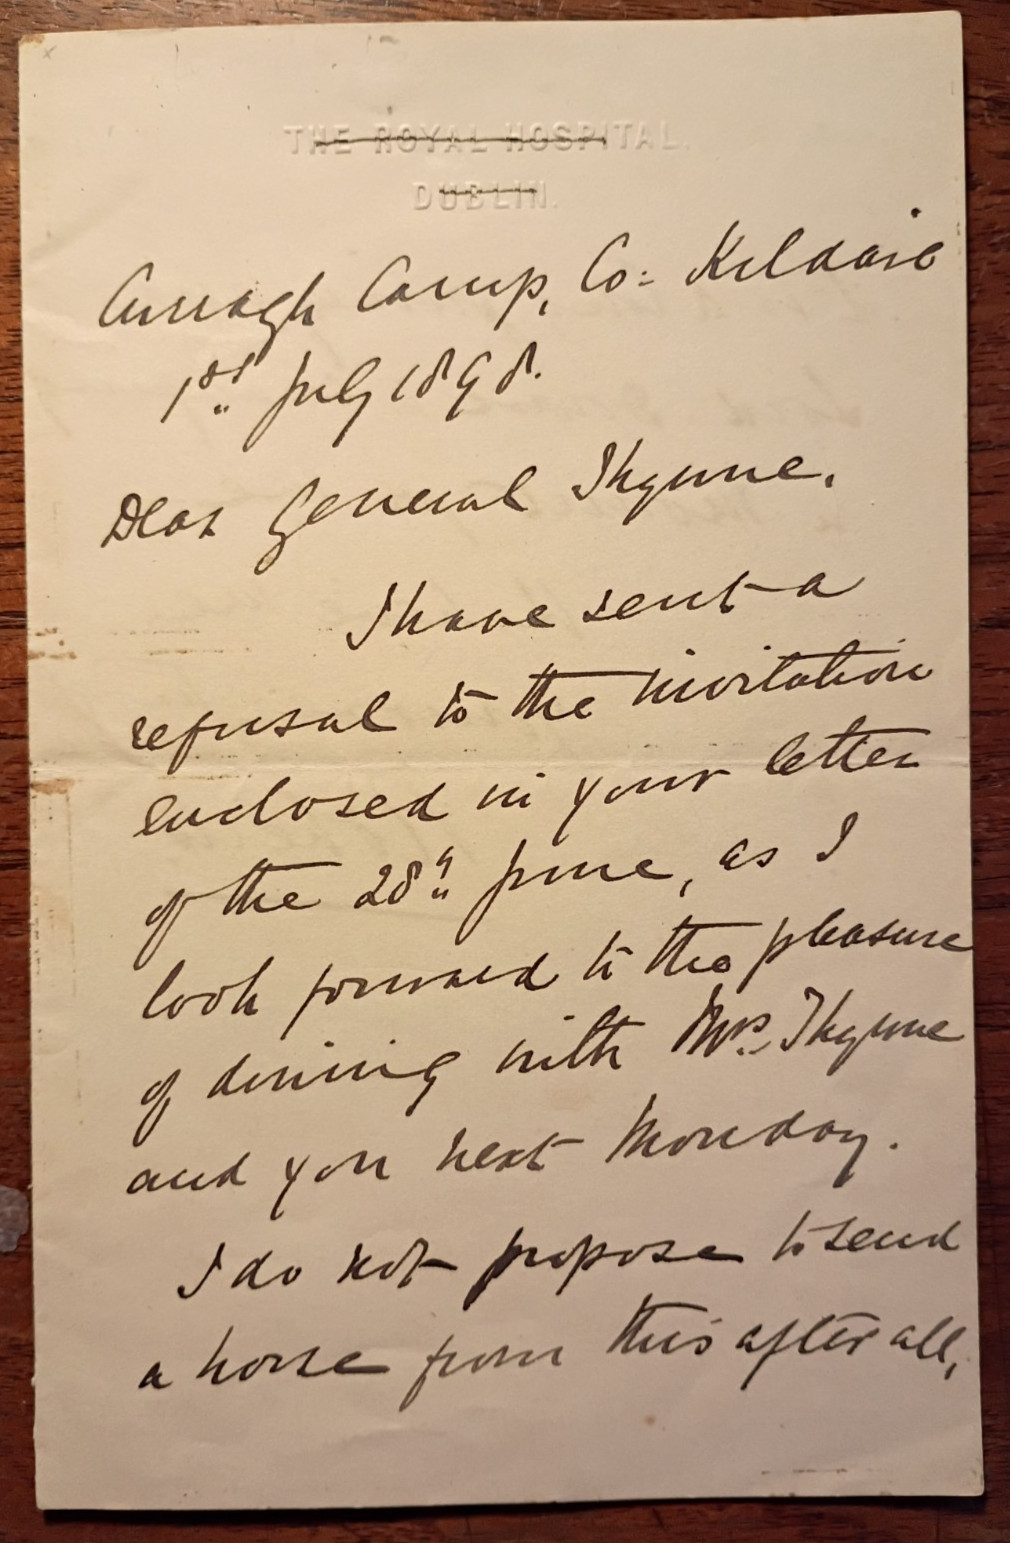 THE ROYAL HOSPITAL.
DUBLIN.
Curragh Camp, Co: Kildare
1st July 1898.
Dear General Thynne,
I have sent a
refusal to the invitation
enclosed in your letter
of the 28th June, as I
look forward to the pleasure
of dining with Mrs. Thynne
and you next Monday.
I do not propose to send
a horse from this after all,